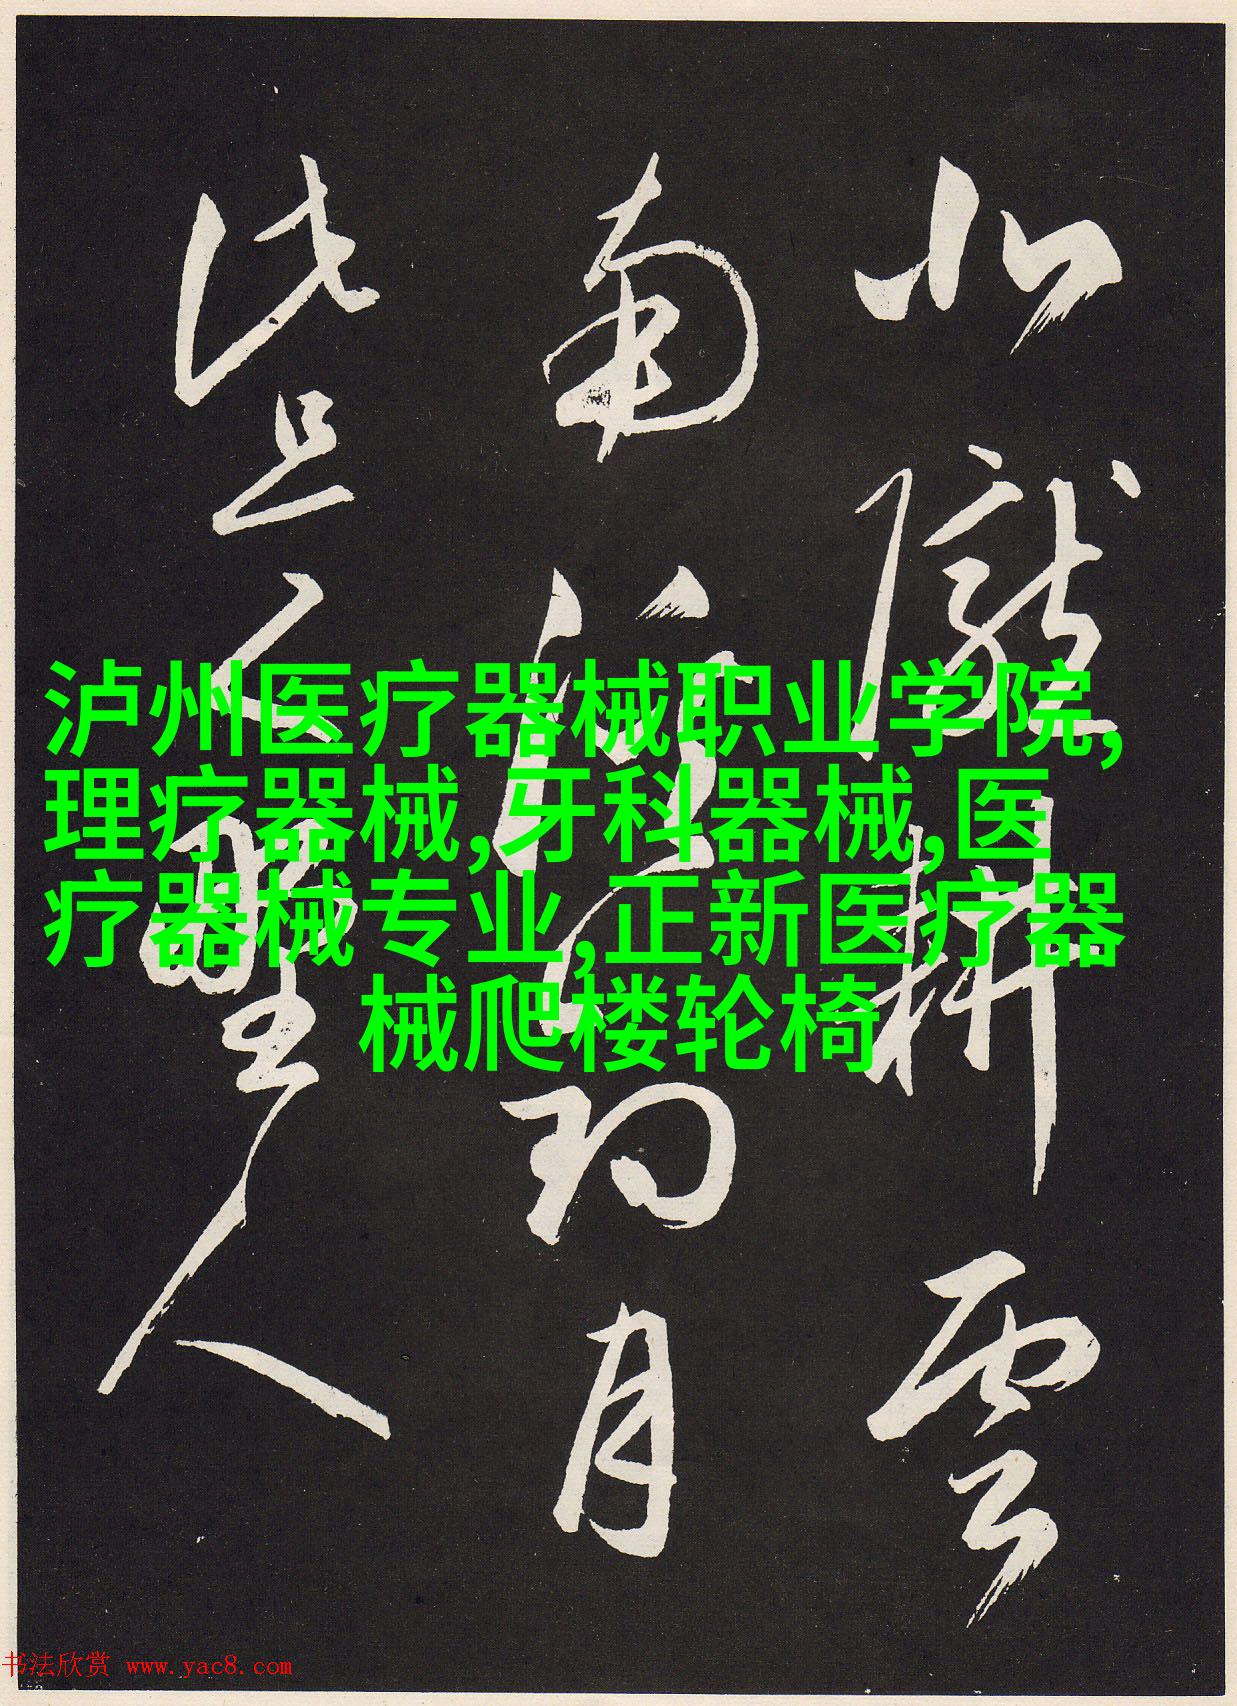 北隴耕雲
南溪釣月
此是野人
泸州医疗器械职业学院,
理疗器械,牙科器械,医
疗器械专业,正新医疗器
械爬楼轮椅
书法欣赏 www.yac8.com